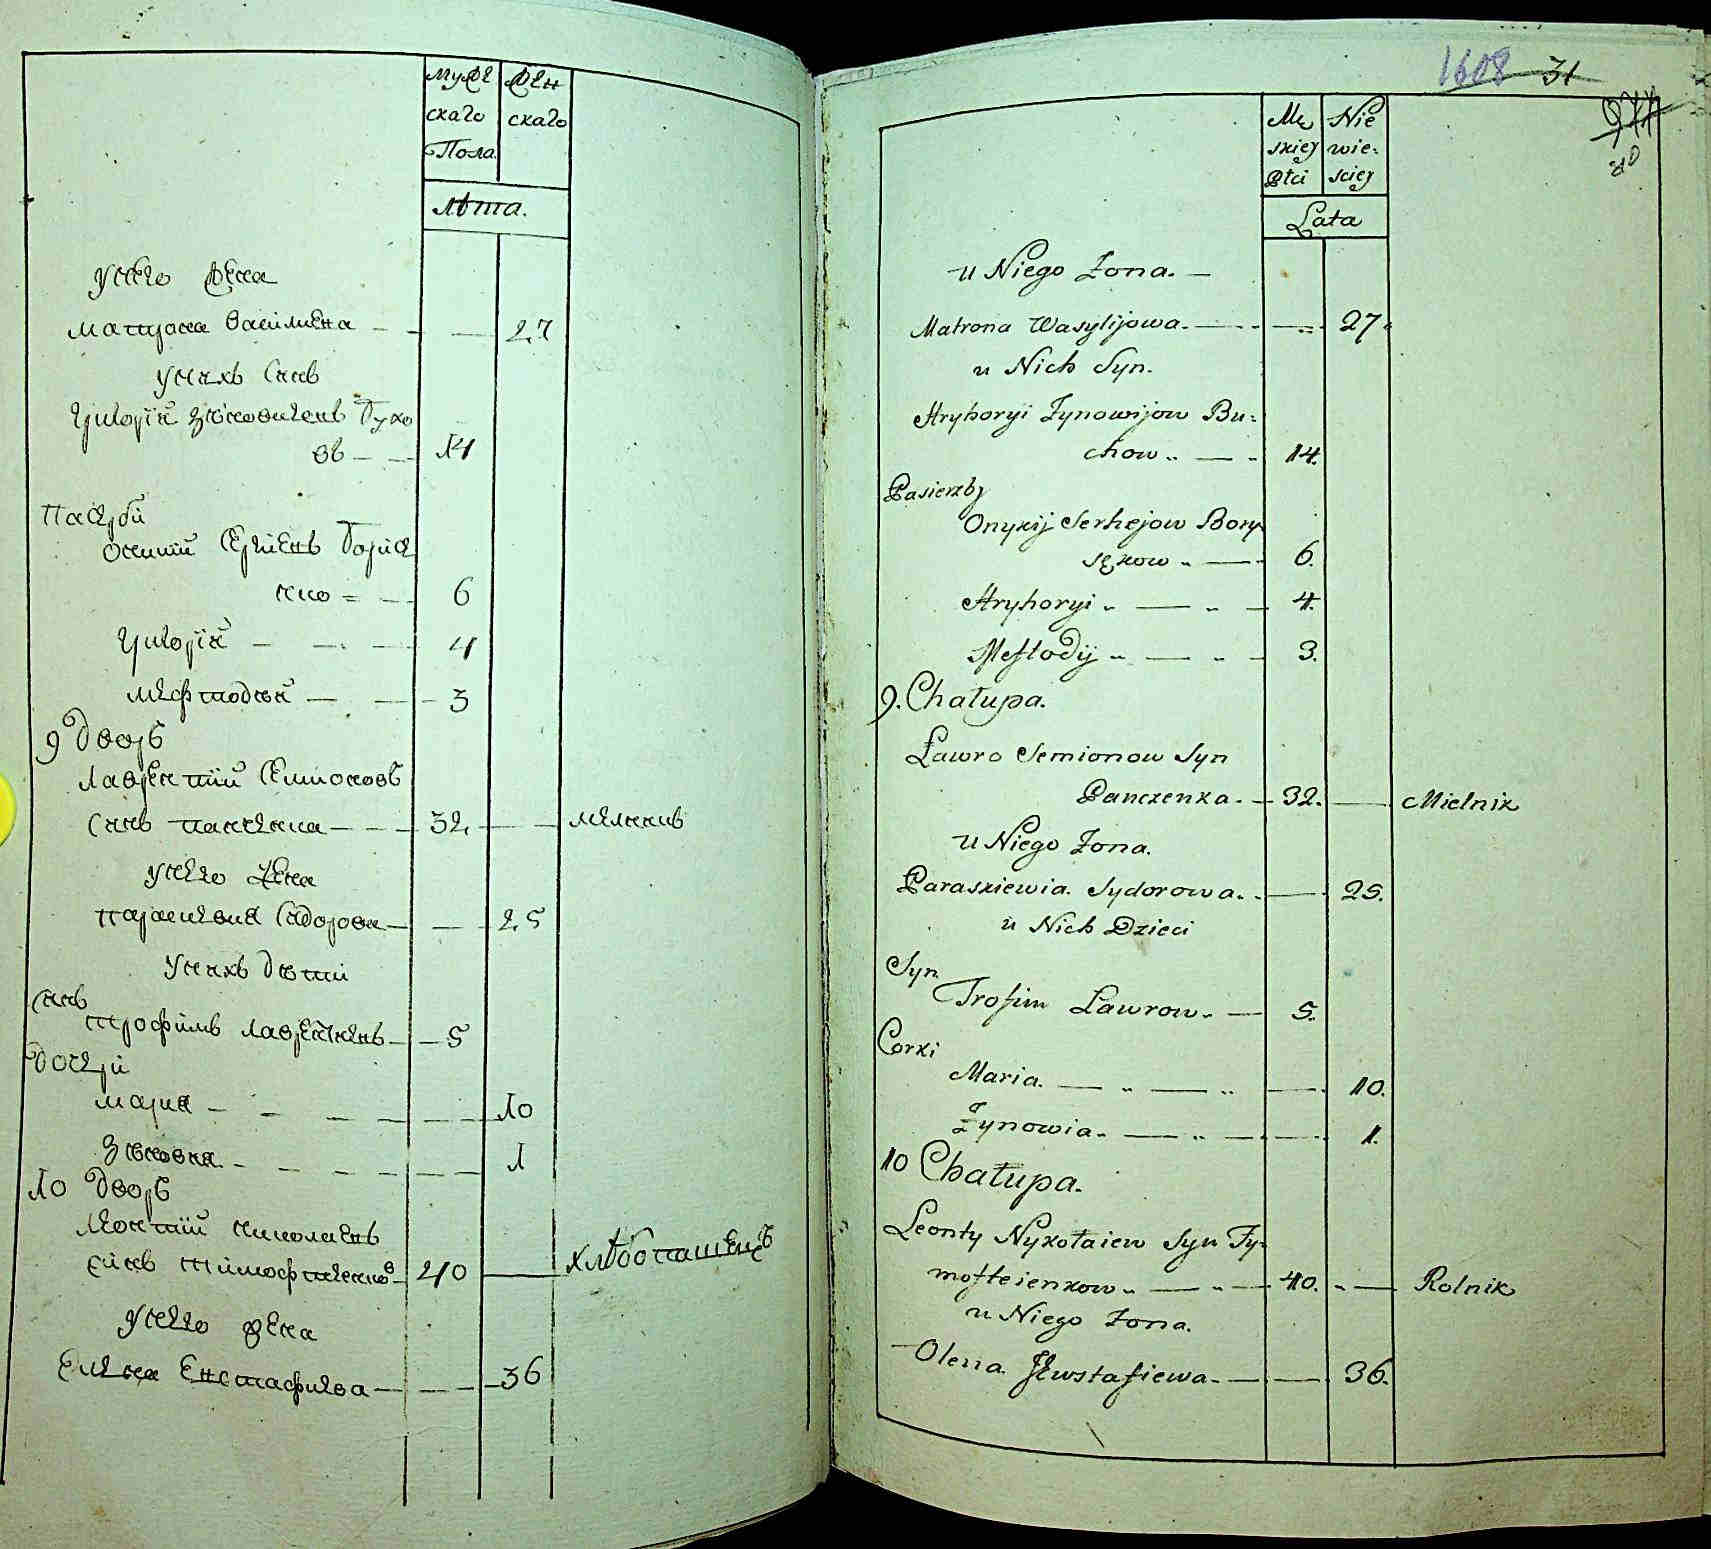 муже
скаго
Пола
жен
скаго
лѣта.
унего жена
матрона василиева 27
унихъ синъ
григорій зѣновиевъ Бухо
въ 14
пасерби
оникий сергиевъ Борисе
нко 6
григорій 4
мефтодий 3
9 дворъ
Лаврентий Семионовъ
синъ панченка 32 мелникъ
унего жена
параскевия Сидорова 25
унихъ дети
синъ
трофимъ лаврентиевъ 5
дочери
мария 10
зѣновия 1
10 дворъ
леонтий николаевъ
синъ тимофтиенковъ 40 хлѣбопашецъ
унего жена
Елена Евстафиева 36
1608 31
Mę
skiey
Płci
Nie
wie-
sciey
Lata
u Niego Żona.
Matrona Wasylijowa. 27.
u Nich Syn.
Hryhoryi Zynowijow Bu-
chow 14.
Pasierzby
Onykij Serhejow Bory
sękow 6.
Hryhoryi 4.
Meftodij 3.
9. Chałupa.
Ławro Semionow Syn
Panczenka. 32. Mielnik
u Niego Żona.
Paraskiewia Sydorowa. 25.
u Nich Dzieci
Syn
Trofim Ławrow. 5.
Corki
Maria. 10.
Zynowia. 1.
10 Chałupa.
Leonty Nykołaiew Syn Ty-
mofteienkow 40. Rolnik
u Niego Żona.
Olena Jewstafiewa. 36.